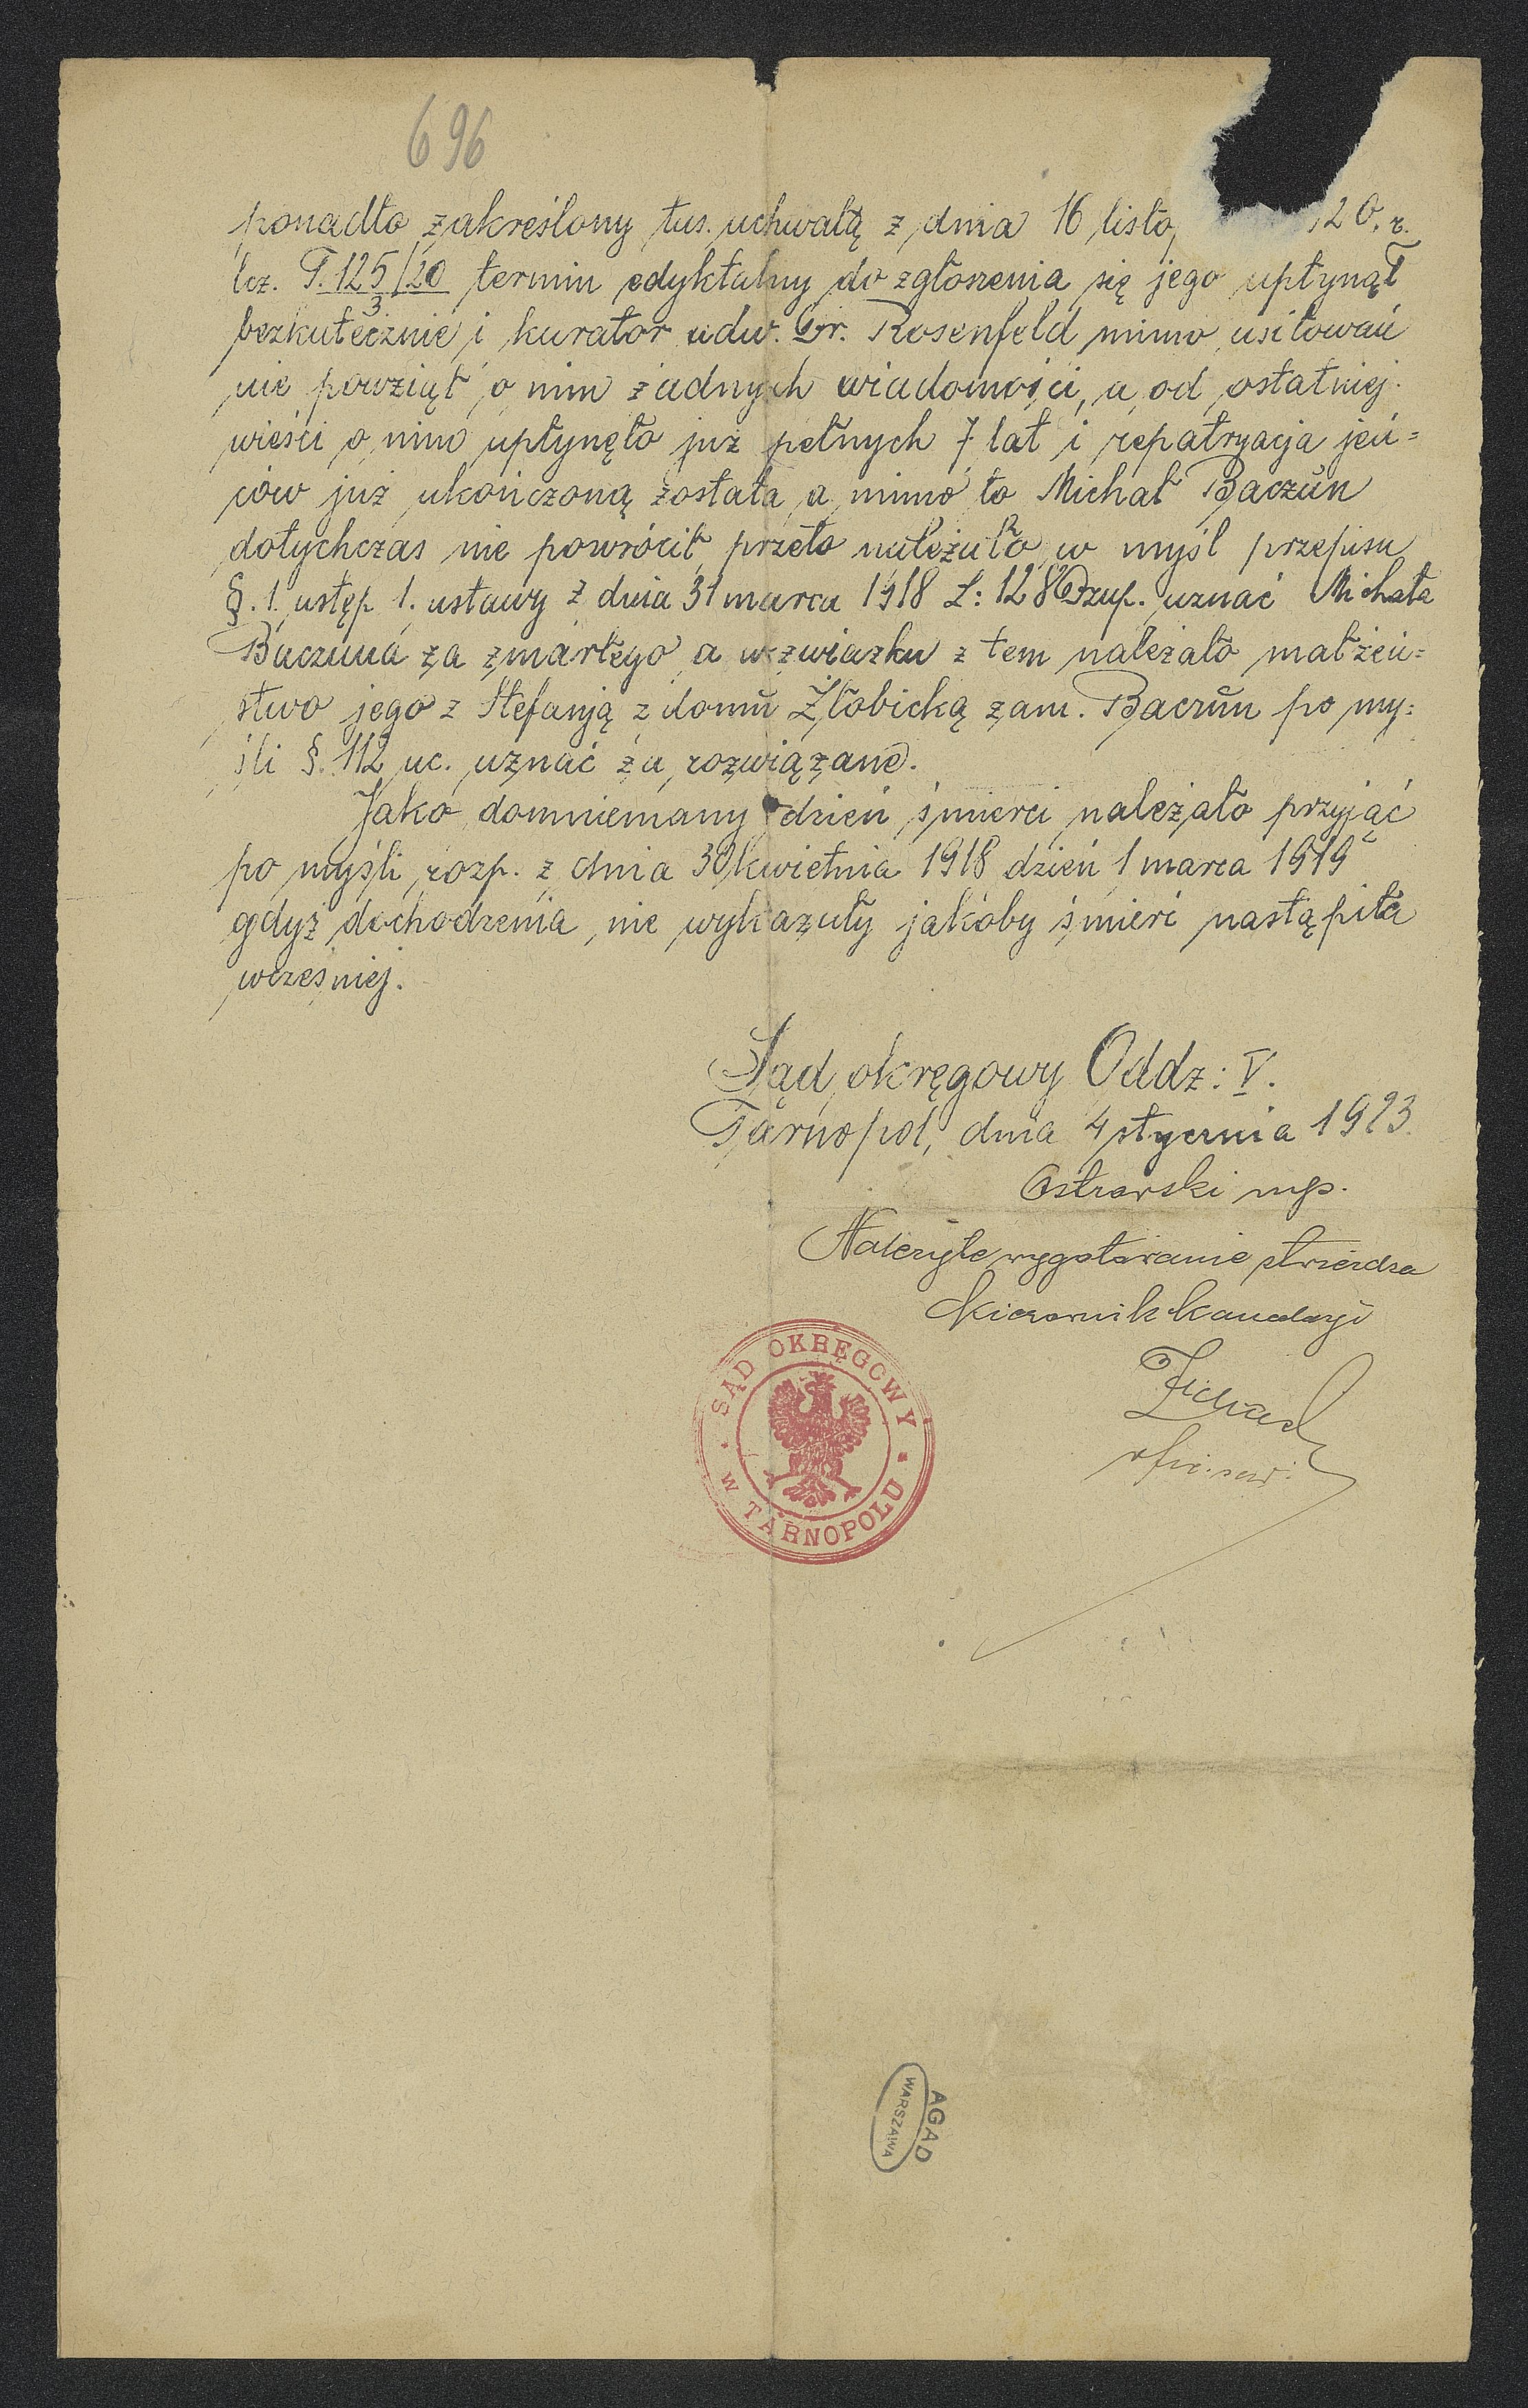 696
ponadto zakreślony tus. uchwałą z dnia 16 listo 20. r.
lcz. T. 125/20 termin edyktalny do zgłoszenia się jego upłynął
3
bezkutecznie i kurator adw. Dr. Rosenfeld mimo usiłowań
nie powziął o nim żadnych wiadomości, a od ostatniej
wieści o nim upłynęło już pełnych 7 lat i repatryacja jeń=
ców już ukończoną została a mimo to Michał Baczun
dotychczas nie powrócił przeto należało w myśl przepisu
§. 1. ustęp 1. ustawy z dnia 31 marca 1918 L: 128 Dzup. uznać Michała
Baczuna za zmarłego a w związku z tem należało małżeń=
stwo jego z Stefanją z domu Żłobicką zam. Baczun po my=
śli §. 112 uc. uznać za rozwiązane.
Jako domniemany dzień śmierci należało przyjąć
po myśli rozp. z dnia 30 kwietnia 1918 dzień 1 marca 1919
gdyż dochodzenia nie wykazały jakoby śmierć nastąpiła
wcześniej.
Sąd okręgowy Oddz: V.
Tarnopol, dnia 4 stycznia 1923.
Ostrowski mp.
Należyte wygotowanie stwierdza
Kierownik kancelaryi
SĄD OKRĘGOWY
W TARNOPOLU
AGAD
WARSZAWA